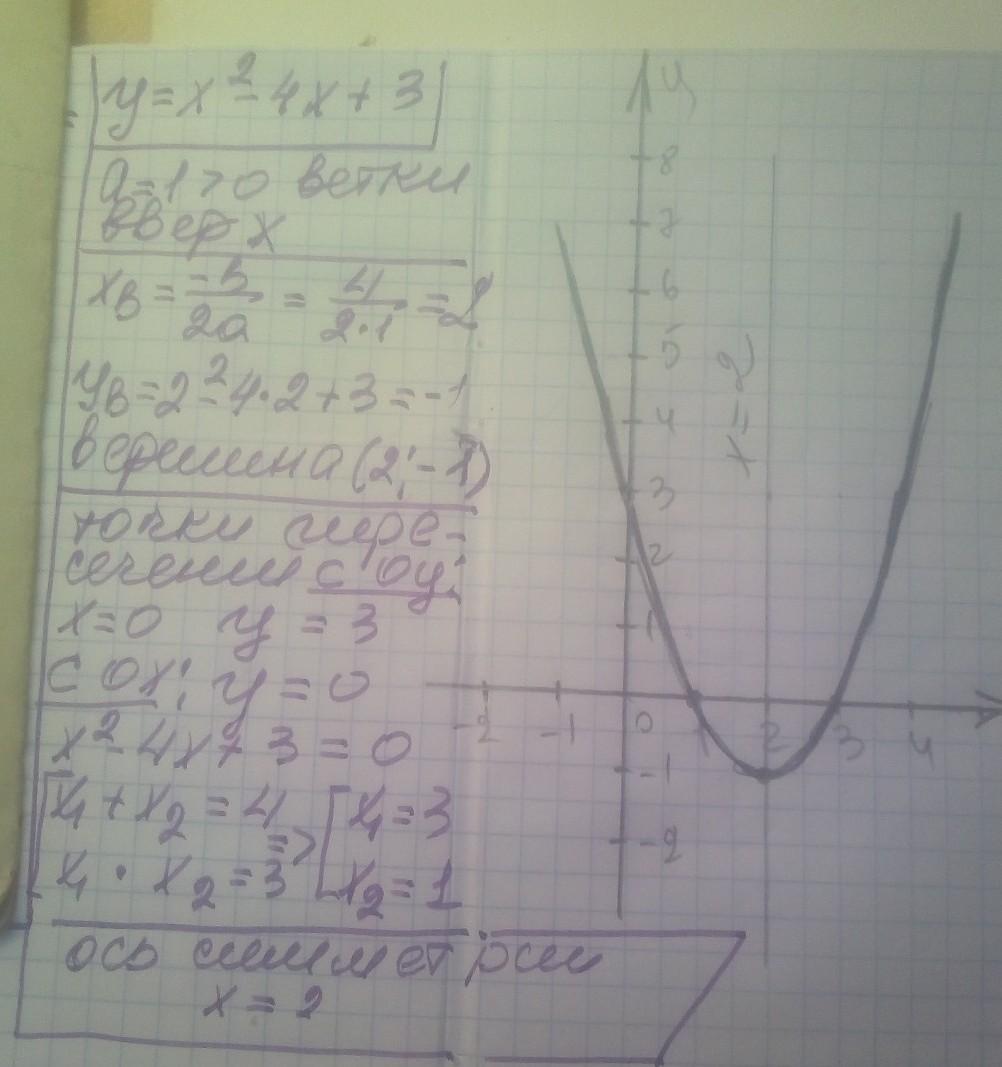 y = x² - 4x + 3
a = 1 > 0 ветки
вверх
xв = -в/2a = 4/2·1 = 2
yв = 2² - 4·2 + 3 = -1
вершина (2; -1)
точки пере-
сечения с oy:
x = 0 y = 3
с ox: y = 0
x² - 4x + 3 = 0
x₁ + x₂ = 4
x₁ · x₂ = 3
=>
x₁ = 3
x₂ = 1
ось симметрии
x = 2
y
8
7
6
5
4
3
2
1
-2 -1 0 1 2 3 4
-1
-2
x = 2